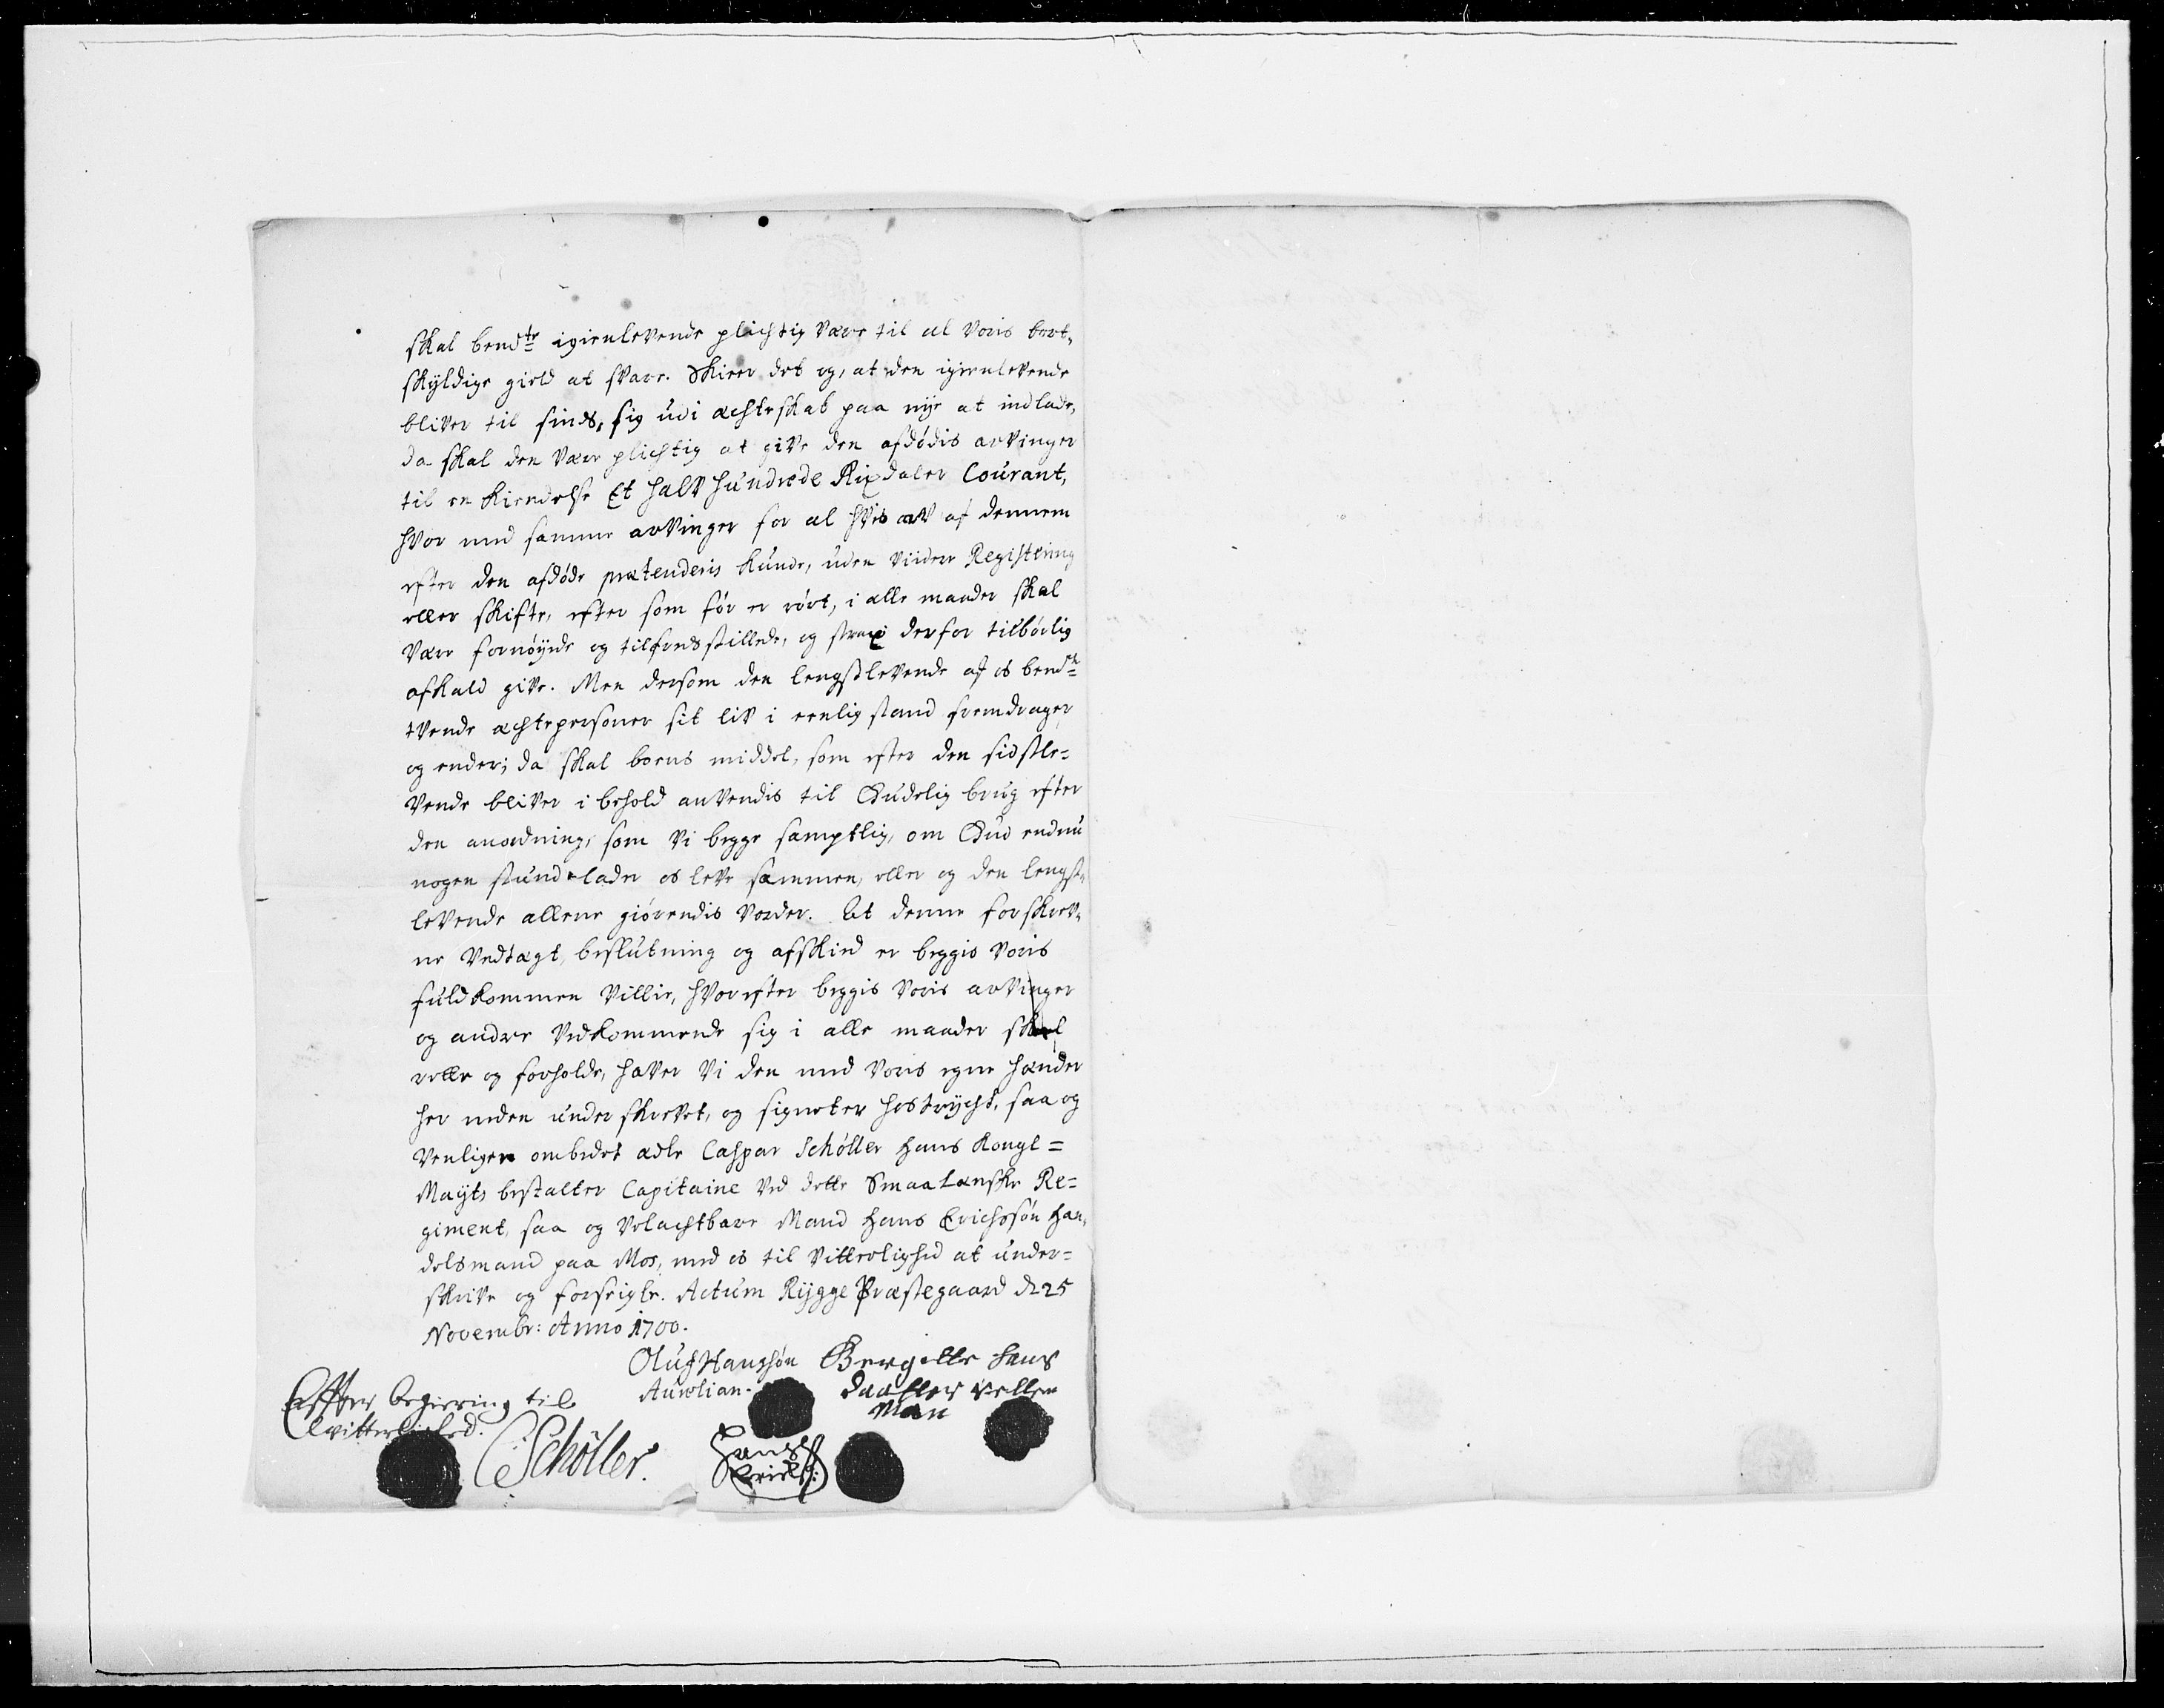 skal bendte igienlevende plichtig være til al voris bort-
skyldige gield at svare. Skeer det og, at den igienlevende
bliver til sinds, sig udi ægteskab paa nye at indlade,
da skal den være plichtig at give den afdødis arvinger
til en kiendelse Et halv hundrede Rixdaler Courant,
hvor med samme arvinger for al hvis arv af dennem
efter den afdøde prætenderis kunde, uden viidere Registering
eller skifte, efter som før er rørt, i alle maader skal
være fornøyede og tilfredsstillede, og strax derfor tilbørlig
afkald give. Men dersom den lengstlevende af os bendte
tvende ægtepersoner sit liv i eenlig stand fremdrager
og ender; da skal voris middel, som efter den sidstle=
vende bliver i behold anvendis til Gudelig brug efter
den anordning, som vi begge samptlig, om Gud endnu
nogen stund lader os leve sammen, eller og den lengst-
levende allene giørendis vorder. At denne forskrev-
ne vedtægt, beslutning og afskied er beggis voris
fuldkommen villie, hvorefter beggis voris arvinger
og andre vedkommende sig i alle maader skal
rette og forholde, haver vi den med voris egne hænder
her neden underskrevet, og signeter hostrycht, saa og
venligen ombedet ædle Caspar Schøller hans Kongl=
Mayts bestalter Capitaine ved dette Smaalenske Re=
giment, saa og velachtbare Mand Hans Erichssøn Han-
delsmand paa Mos, med os til vitterlighed at under=
skrive og forseigle. Actum Rygge Præstegaard d 25
Novembr: Anno 1700.
Oluf Hanssøn Bergitte Hans
Aurolian. daatter Vellen
man
Effter begiering til
vitterlighed.
CSchöller.
Hans
Erichs: